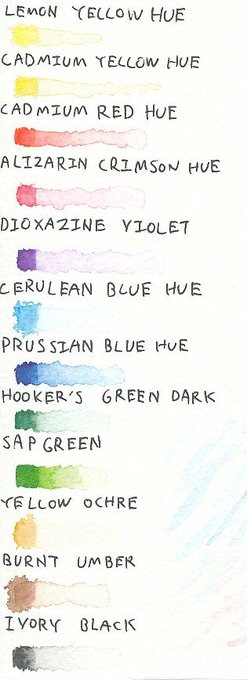 LEMON YELLOW HUE
CADMIUM YELLOW HUE
CADMIUM RED HUE
ALIZARIN CRIMSON HUE
DIOXAZINE VIOLET
CERULEAN BLUE HUE
PRUSSIAN BLUE HUE
HOOKER'S GREEN DARK
SAP GREEN
YELLOW OCHRE
BURNT UMBER
IVORY BLACK